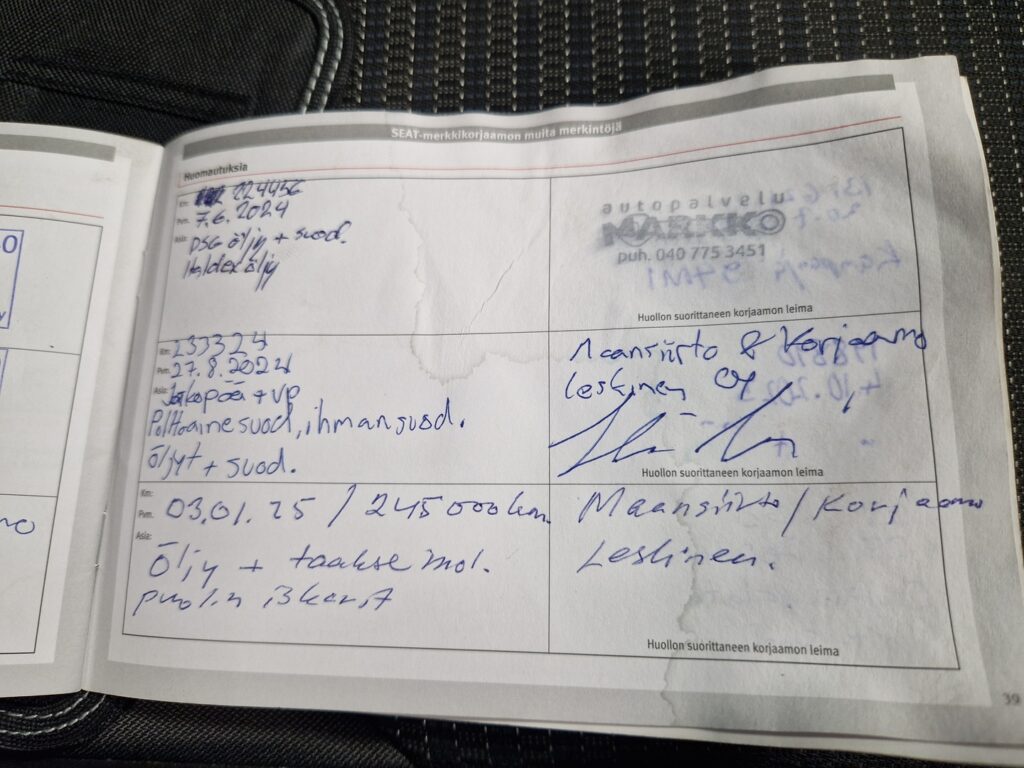 SEAT-merkkikorjaamon muita merkintöjä
Huomautuksia
Km: 224456
Pvm. 7.6.2024
Asia: DSG öljy + suod.
Haldex öljy
autopalvelu
MARKKO
puh. 040 775 3451
Huollon suorittaneen korjaamon leima
Km: 233324
Pvm. 27.8.2024
Asia: Jakopää + VP
Polttoainesuod, ilmansuod.
Öljyt + suod.
Maansiirto & Korjaamo
Leskinen Oy
Huollon suorittaneen korjaamon leima
Km:
Pvm. 03.01.25 / 245 000 km.
Asia:
Öljy + taakse mol.
puolin iskarit
Maansiirto / Korjaamo
Leskinen.
Huollon suorittaneen korjaamon leima
39